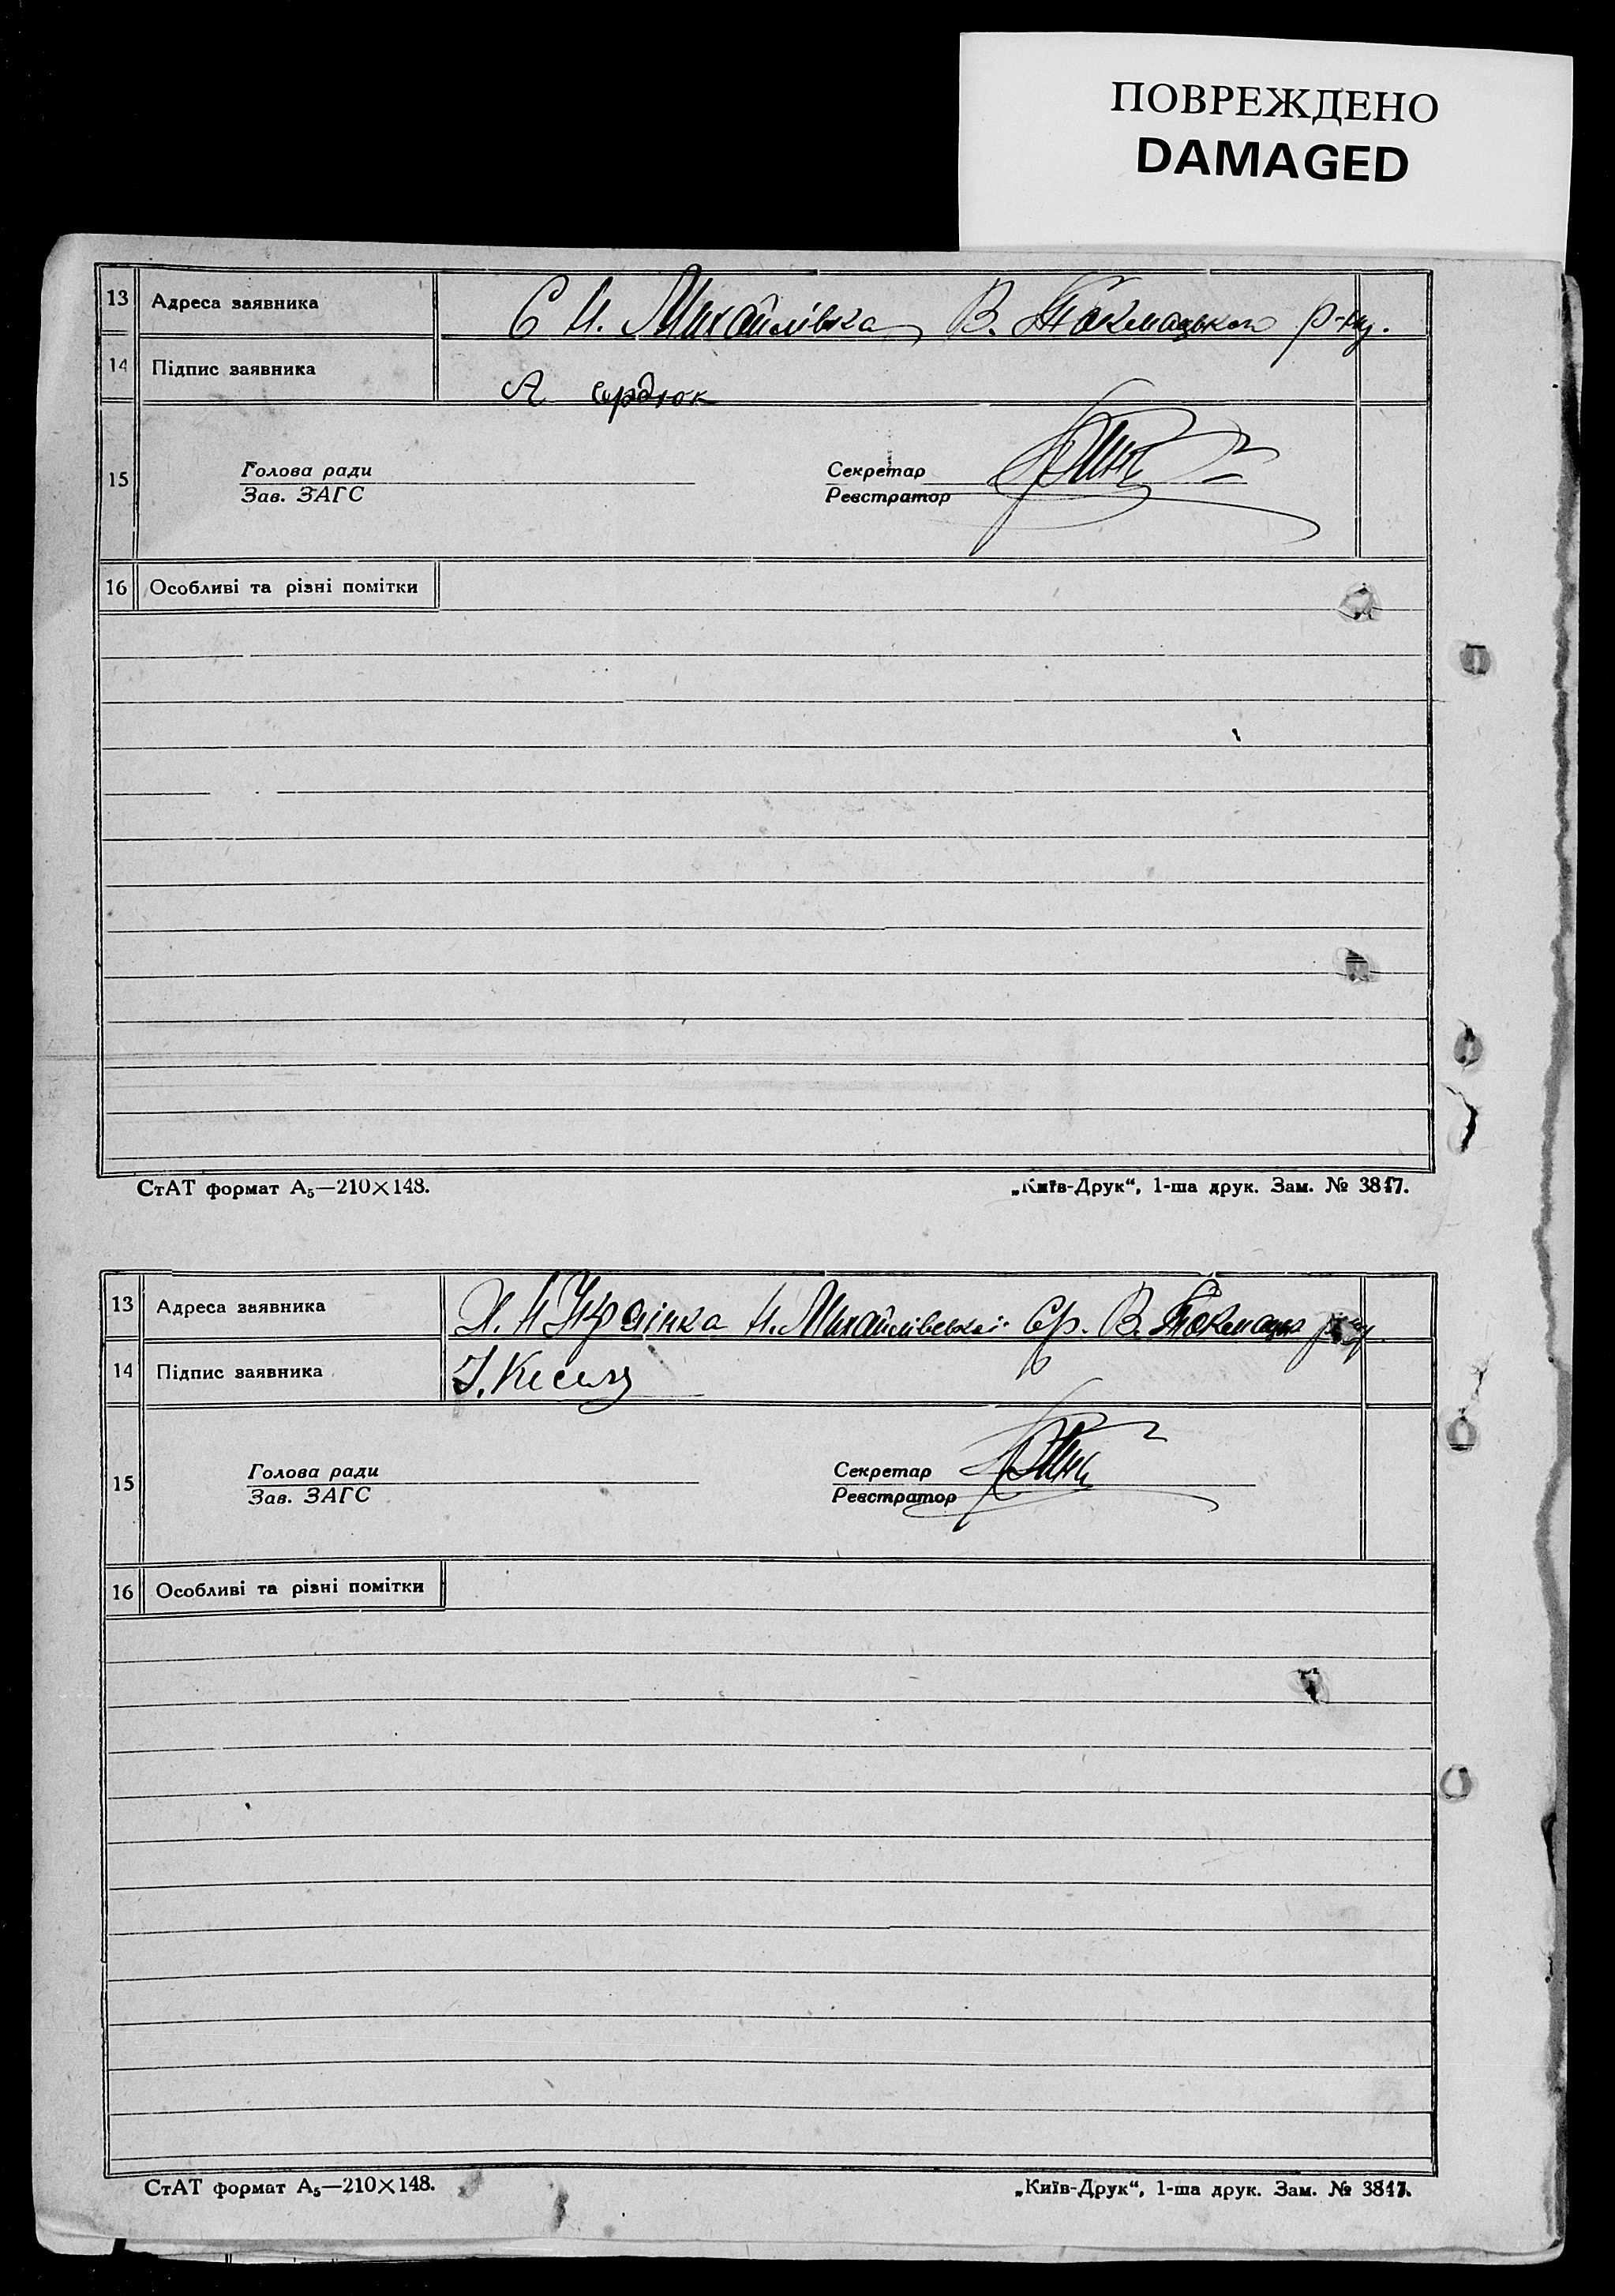 ПОВРЕЖДЕНО
DAMAGED
13 Адреса заявника С Н. Михайлівка, В. Токмацького р-ну.
14 Підпис заявника А Сердюк
15 Голова ради Секретар
Зав. ЗАГС Реєстратор
16 Особливі та різні помітки
СтАТ формат А₅—210×148. „Київ-Друк“, 1-ша друк. Зам. № 3847.
13 Адреса заявника Х. Н Українка Н. Михайлівської с/р. В. Токмацьк р-ну.
14 Підпис заявника І.
15 Голова ради Секретар
Зав. ЗАГС Реєстратор
16 Особливі та різні помітки
СтАТ формат А₅—210×148. „Київ-Друк“, 1-ша друк. Зам. № 3847.